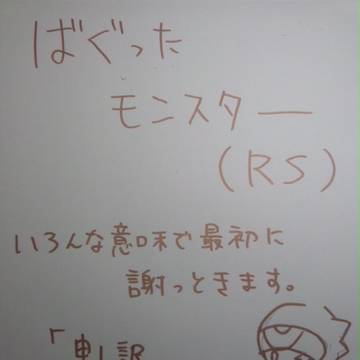 ばぐった
モンスター
(RS)
いろんな意味で最初に
謝っときます。
「申し訳